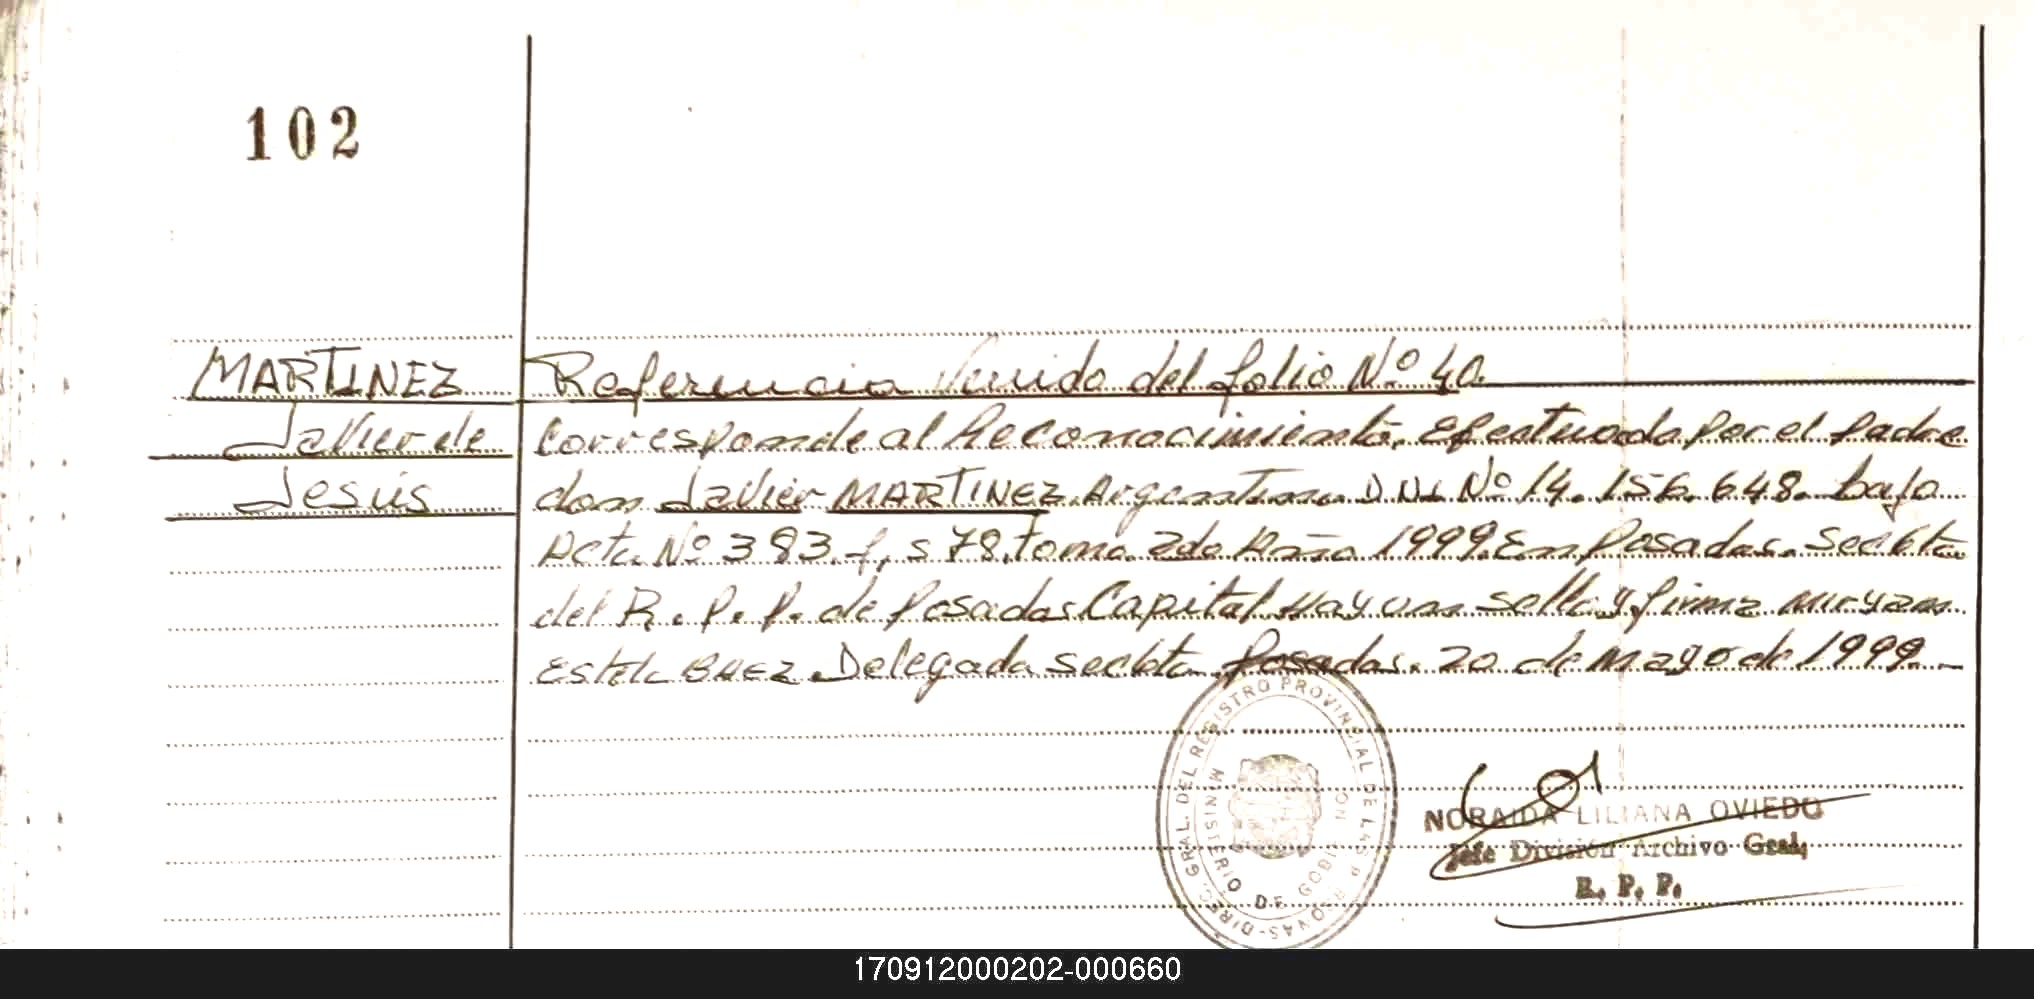 102
MARTINEZ Referencia Venido del folio Nº 40.
Javier de Corresponde al Reconocimiento, Efectuado Por el Padre
Jesús don Javier MARTINEZ Argentino D.N.I. Nº 14.156.648. bajo
Acta Nº 383. f, s 78. tomo 2do Año 1999. En Posadas. Secc 6ta
del R.P.P. de Posadas Capital Hay un sello y firma Miryam
Estela BAEZ Delegada secc 6ta Posadas. 20 de Mayo de 1999.-
DIREC. GRAL. DEL REGISTRO PROVINCIAL DE LAS PERSONAS
MINISTERIO DE GOBIERNO
NORAIDA LILIANA OVIEDO
Jefe División Archivo Gral,
R. P. P.
170912000202-000660